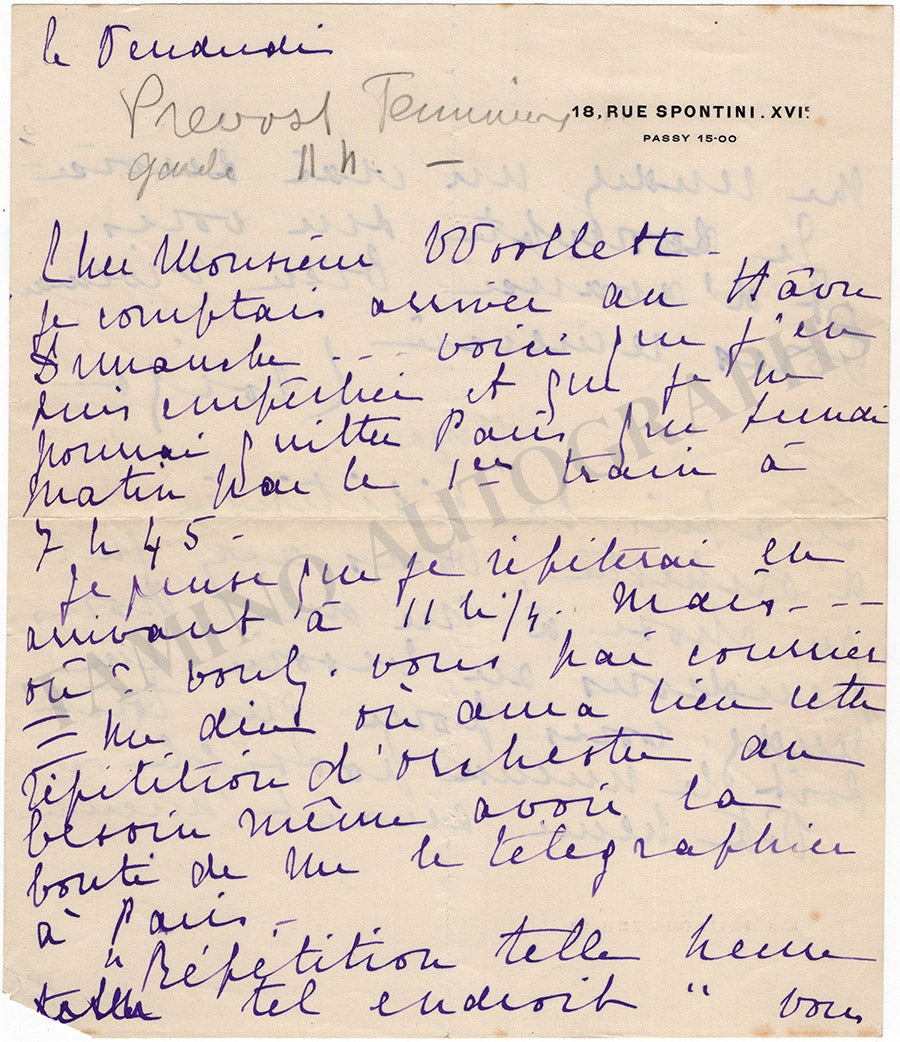 le Vendredi
Prevost
18, RUE SPONTINI. XVIᴱ.
PASSY 15-00
garde 11 h. —
Cher Monsieur Woollett -
je comptais arriver au Hâvre
Dimanche --- voici que j'en
suis empêchée et que je ne
pourrai quitter Paris que Lundi
matin par le 1er train à
7 h 45 -
Je pense que je répéterai en
arrivant à 11 h 1/4. Mais ---
où? voulez-vous par courrier
me dire où aura lieu cette
répétition d'orchestre au
besoin même avoir la
bonté de me le télégraphier
à Paris -
"Répétition telle heure
tel endroit" vous
TAMINO AUTOGRAPHS